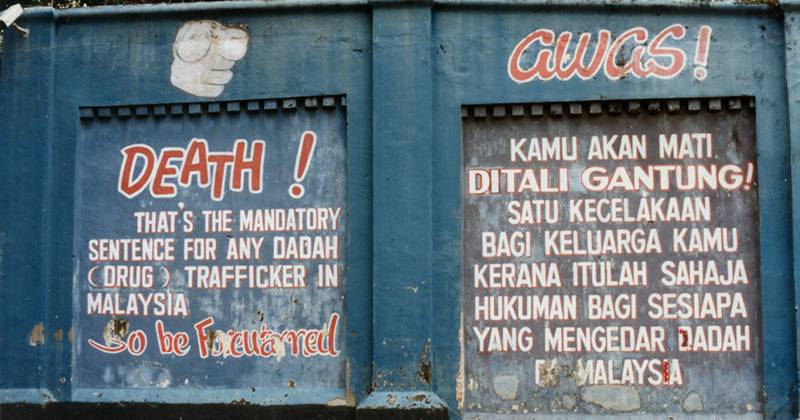 DEATH !
THAT'S THE MANDATORY
SENTENCE FOR ANY DADAH
(DRUG) TRAFFICKER IN
MALAYSIA
So be Forewarned
AWAS!
KAMU AKAN MATI
DITALI GANTUNG!
SATU KECELAKAAN
BAGI KELUARGA KAMU
KERANA ITULAH SAHAJA
HUKUMAN BAGI SESIAPA
YANG MENGEDAR DADAH
DI MALAYSIA